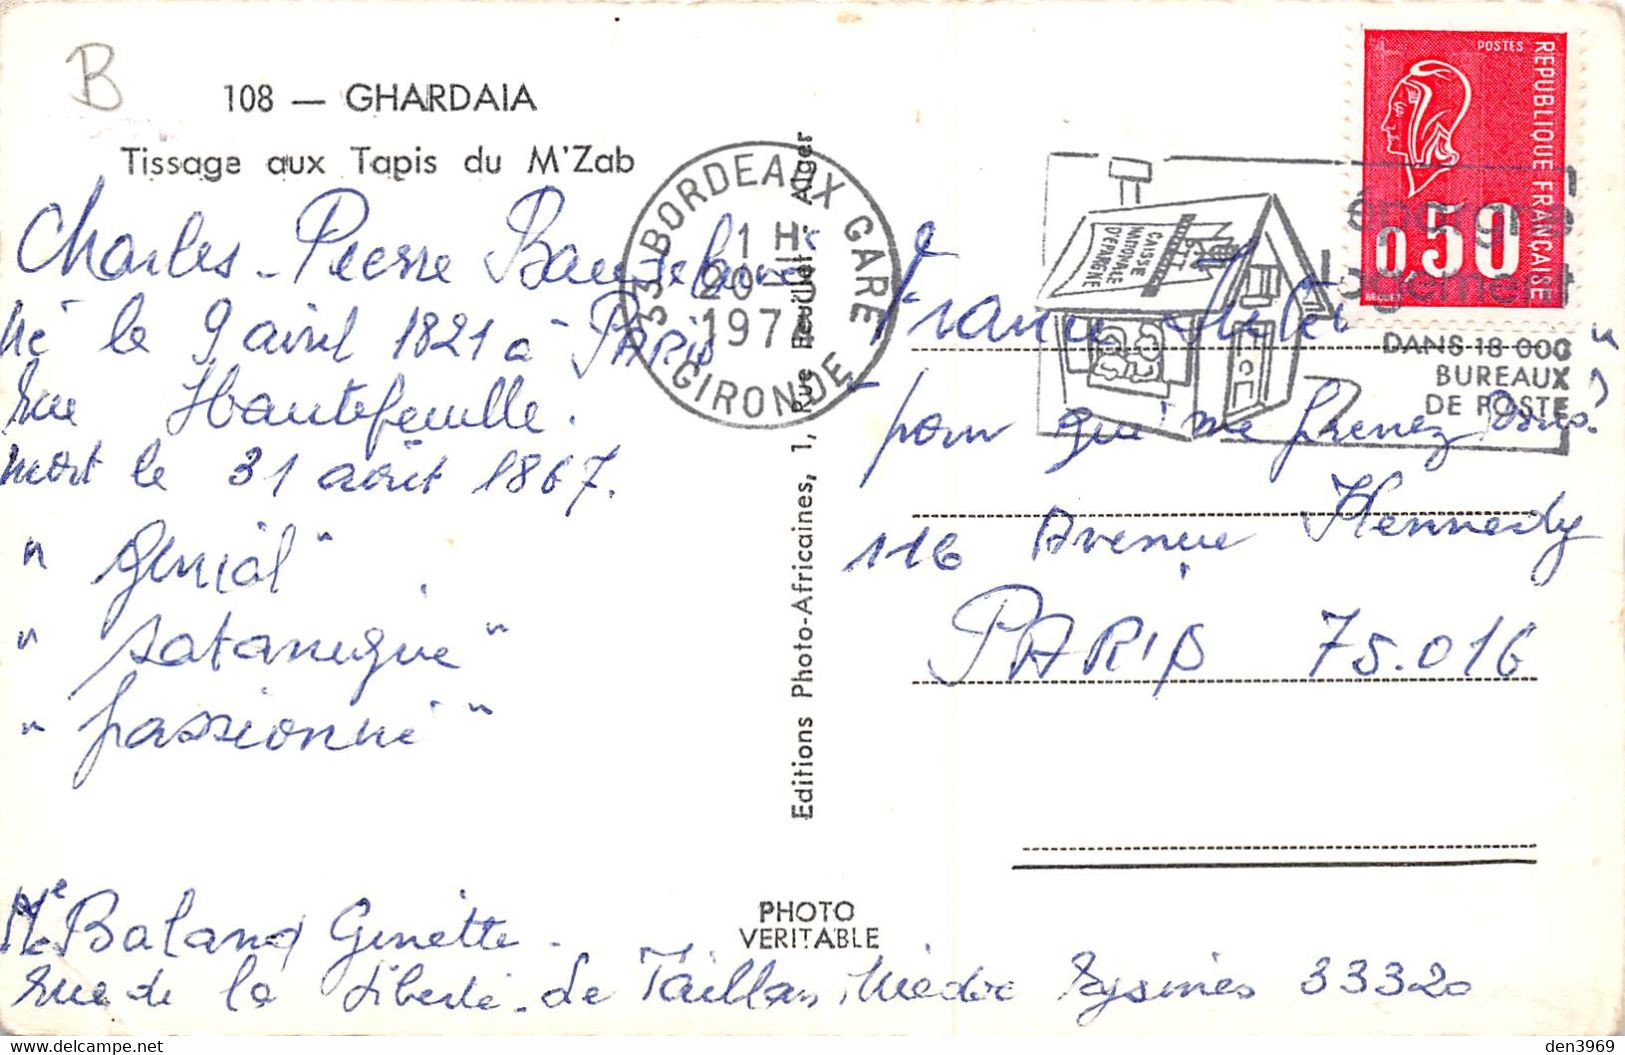 B
108 — GHARDAIA
Tissage aux Tapis du M'Zab
Charles-Pierre Baudelaire
né le 9 avril 1821 à PARIS
rue Hautefeuille.
mort le 31 août 1867.
"génial"
"satanique"
"passionné"
Me Baland Ginette.
rue de la Liberté. Le Taillan Médoc Eysines 33320
Editions Photo-Africaines, 1, Rue Feuillet, Alger
PHOTO
VERITABLE
33 BORDEAUX GARE
GIRONDE
1 H
20
197
CAISSE
NATIONALE
D'EPARGNE
PTT
épargne
logement
DANS 18 000
BUREAUX
DE POSTE
POSTES
REPUBLIQUE FRANÇAISE
0,50
BEQUET
France Inter
"pour qui me prenez vous?"
116 Avenue Kennedy
PARIS 75.016
den3969